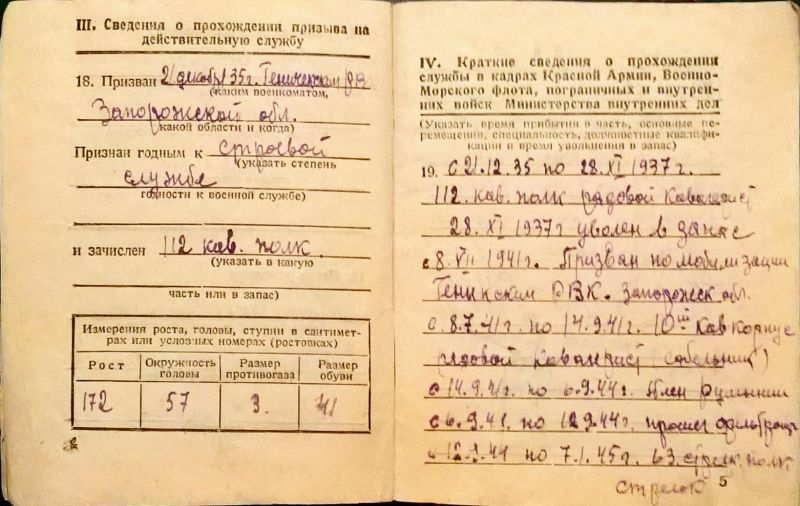 III. Сведения о прохождении призыва на
действительную службу
18. Призван 21 декабр 35 г. Геническим РВК
(каким военкоматом,
Запорожской обл.
какой области и когда)
Признан годным к строевой
(указать степень
службе
годности к военной службе)
и зачислен 112 кав. полк
(указать в какую
часть или в запас)
Измерения роста, головы, ступни в сантимет-
рах или условных номерах (ростовках)
Рост Окружность головы Размер противогаза Размер обуви
172 57 3. 41
IV. Краткие сведения о прохождении
службы в кадрах Красной Армии, Военно-
Морского флота, пограничных и внутрен-
них войск Министерства внутренних дел
(Указать время прибытия в часть, основные пе-
ремещения, специальность, должностные квалифи-
кации и время увольнения в запас)
19. с 21.12.35 по 28.XI 1937 г.
112. кав. полк рядовой кавалерист
28. XI 1937 г уволен в запас
с 8. VII 1941 г. Призван по мобилизации
Геническим РВК. Запорожск обл.
с 8.7.41 г. по 14.9.41 г. 10ый Кав корпус
рядовой кавалерист (сабельник)
с 14.9.41 г. по 6.9.44 г. плен Румынии
с 6.9.44 г. по 12.9.44 г. прошел фильтрац
с 12.9.44 по 7.1.45 г. 63. стрелк. полк
стрелок 5